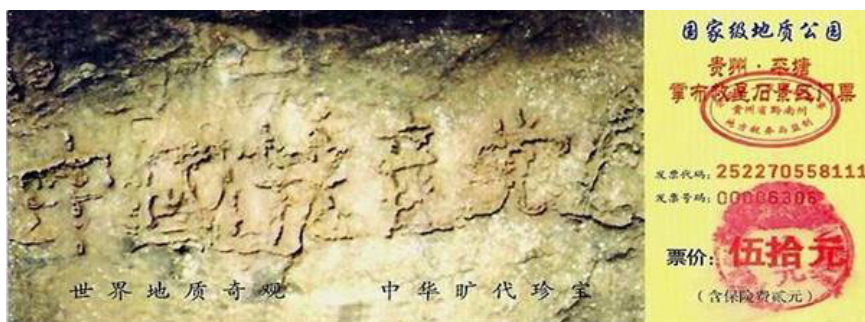 中国共産党亡
世界地质奇观 中华旷代珍宝
国家级地质公园
贵州·平塘
掌布救星石景区门票
贵州省黔南州
地方税务局监制
发票代码：252270558111
发票号码：00006306
票价：伍拾元
（含保险费贰元）